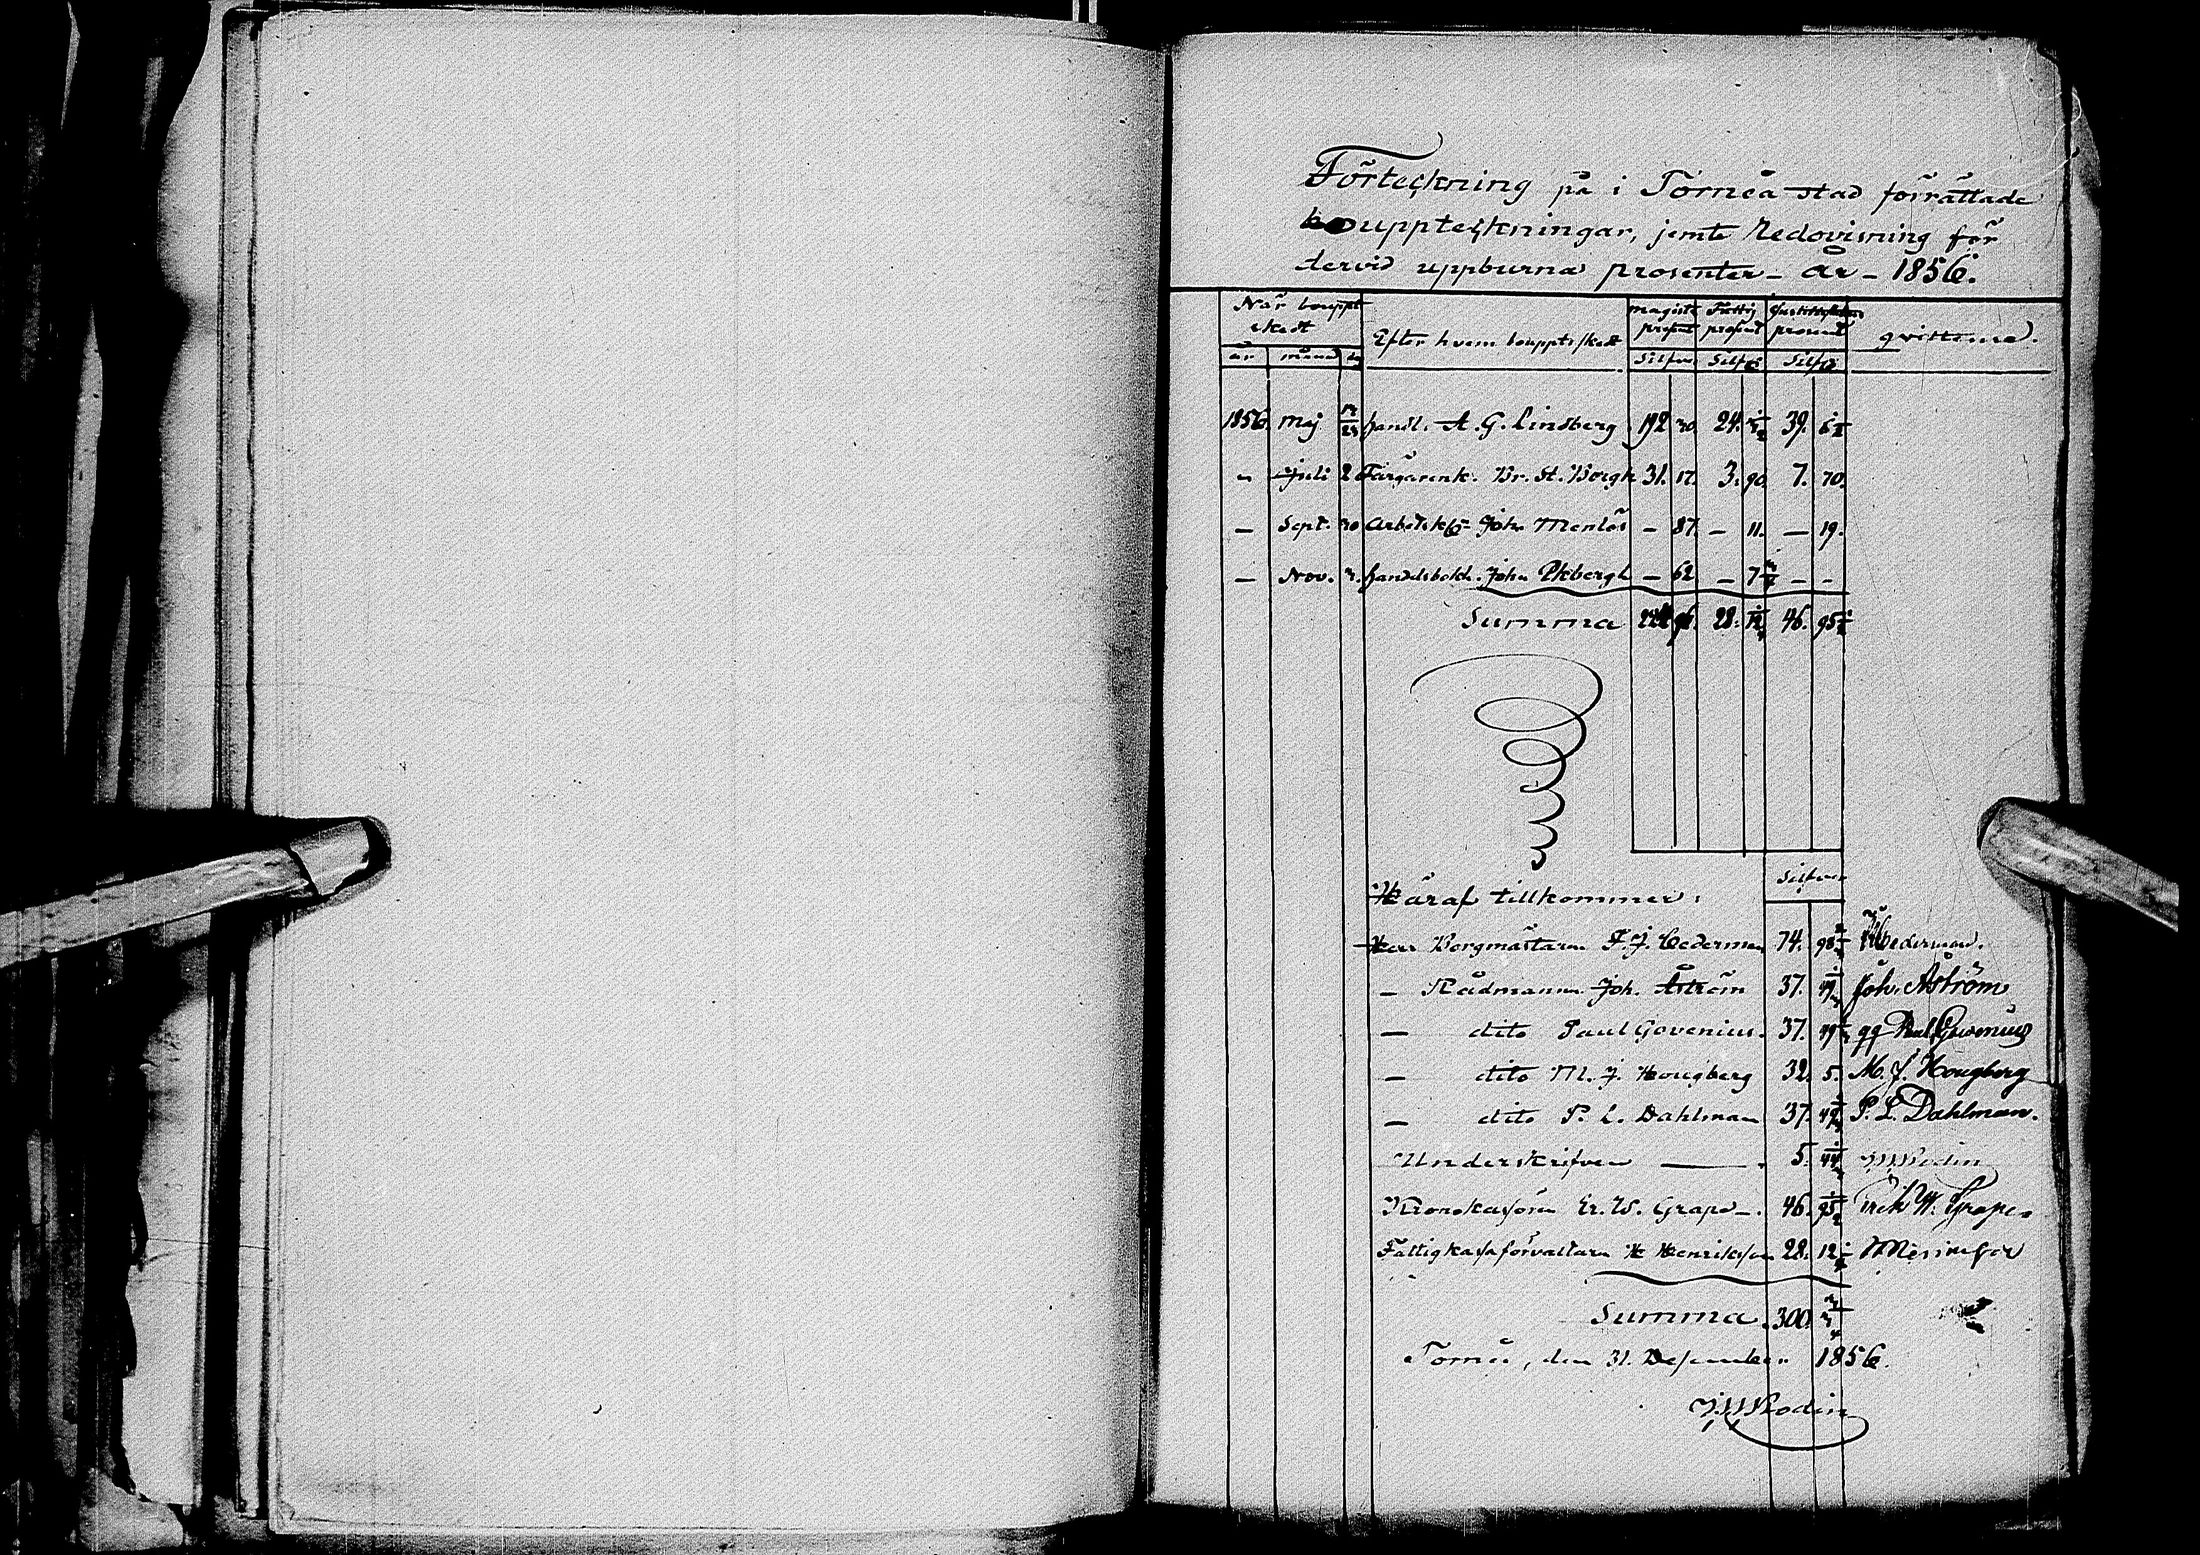 Förteckning på i Torneå stad förrättade
bouppteckningar, jemte Redovisning för
dervid uppburna prosenter - år - 1856.
När bouppt skedt | Efter hvem bouppt: skedt | magist: prosent | Fattig prosent | prosent | qvittence.
år | månad | dag | Silfver | Silfv: | Silfv:
1856. Maj 23 handl. A. G. Lindberg 192 30 24. 39.
" Juli 2 Färgarenk. Br. St. Borgh 31. 17. 3. 90 7. 70.
— Sept. 30 Arbetsk: Joh. Menlös — 87. — 11. — 19.
— Nov. 3. handelsbokh. John Ekbergh — 62 — 7 3/4 — -
Summa 224 96. 28. 12 1/4 46. 95 1/2
Häraf tillkommer:
Silfver
Herr Borgmästaren F. J. Cederman 74. 98 Cederman.
— Rådmannen Joh. Åström 37. 49 Joh. Åström
— dito Paul Govenius. 37. 49 Paul Govenius
— dito M. J. Hougberg 32. 5. M. J. Hougberg
— dito P. L. Dahlman 37. 49 P. L. Dahlman.
Underskrifven — 5. 44 Rodin
Kronokassören Er. W. Grape -. 46. 95 1/2 Erik W. Grape.
Fattigkassaförvaltaren H Henriksson 28. 12 1/4
Summa 300.
Torneå, den 31. December 1856.
Rodin